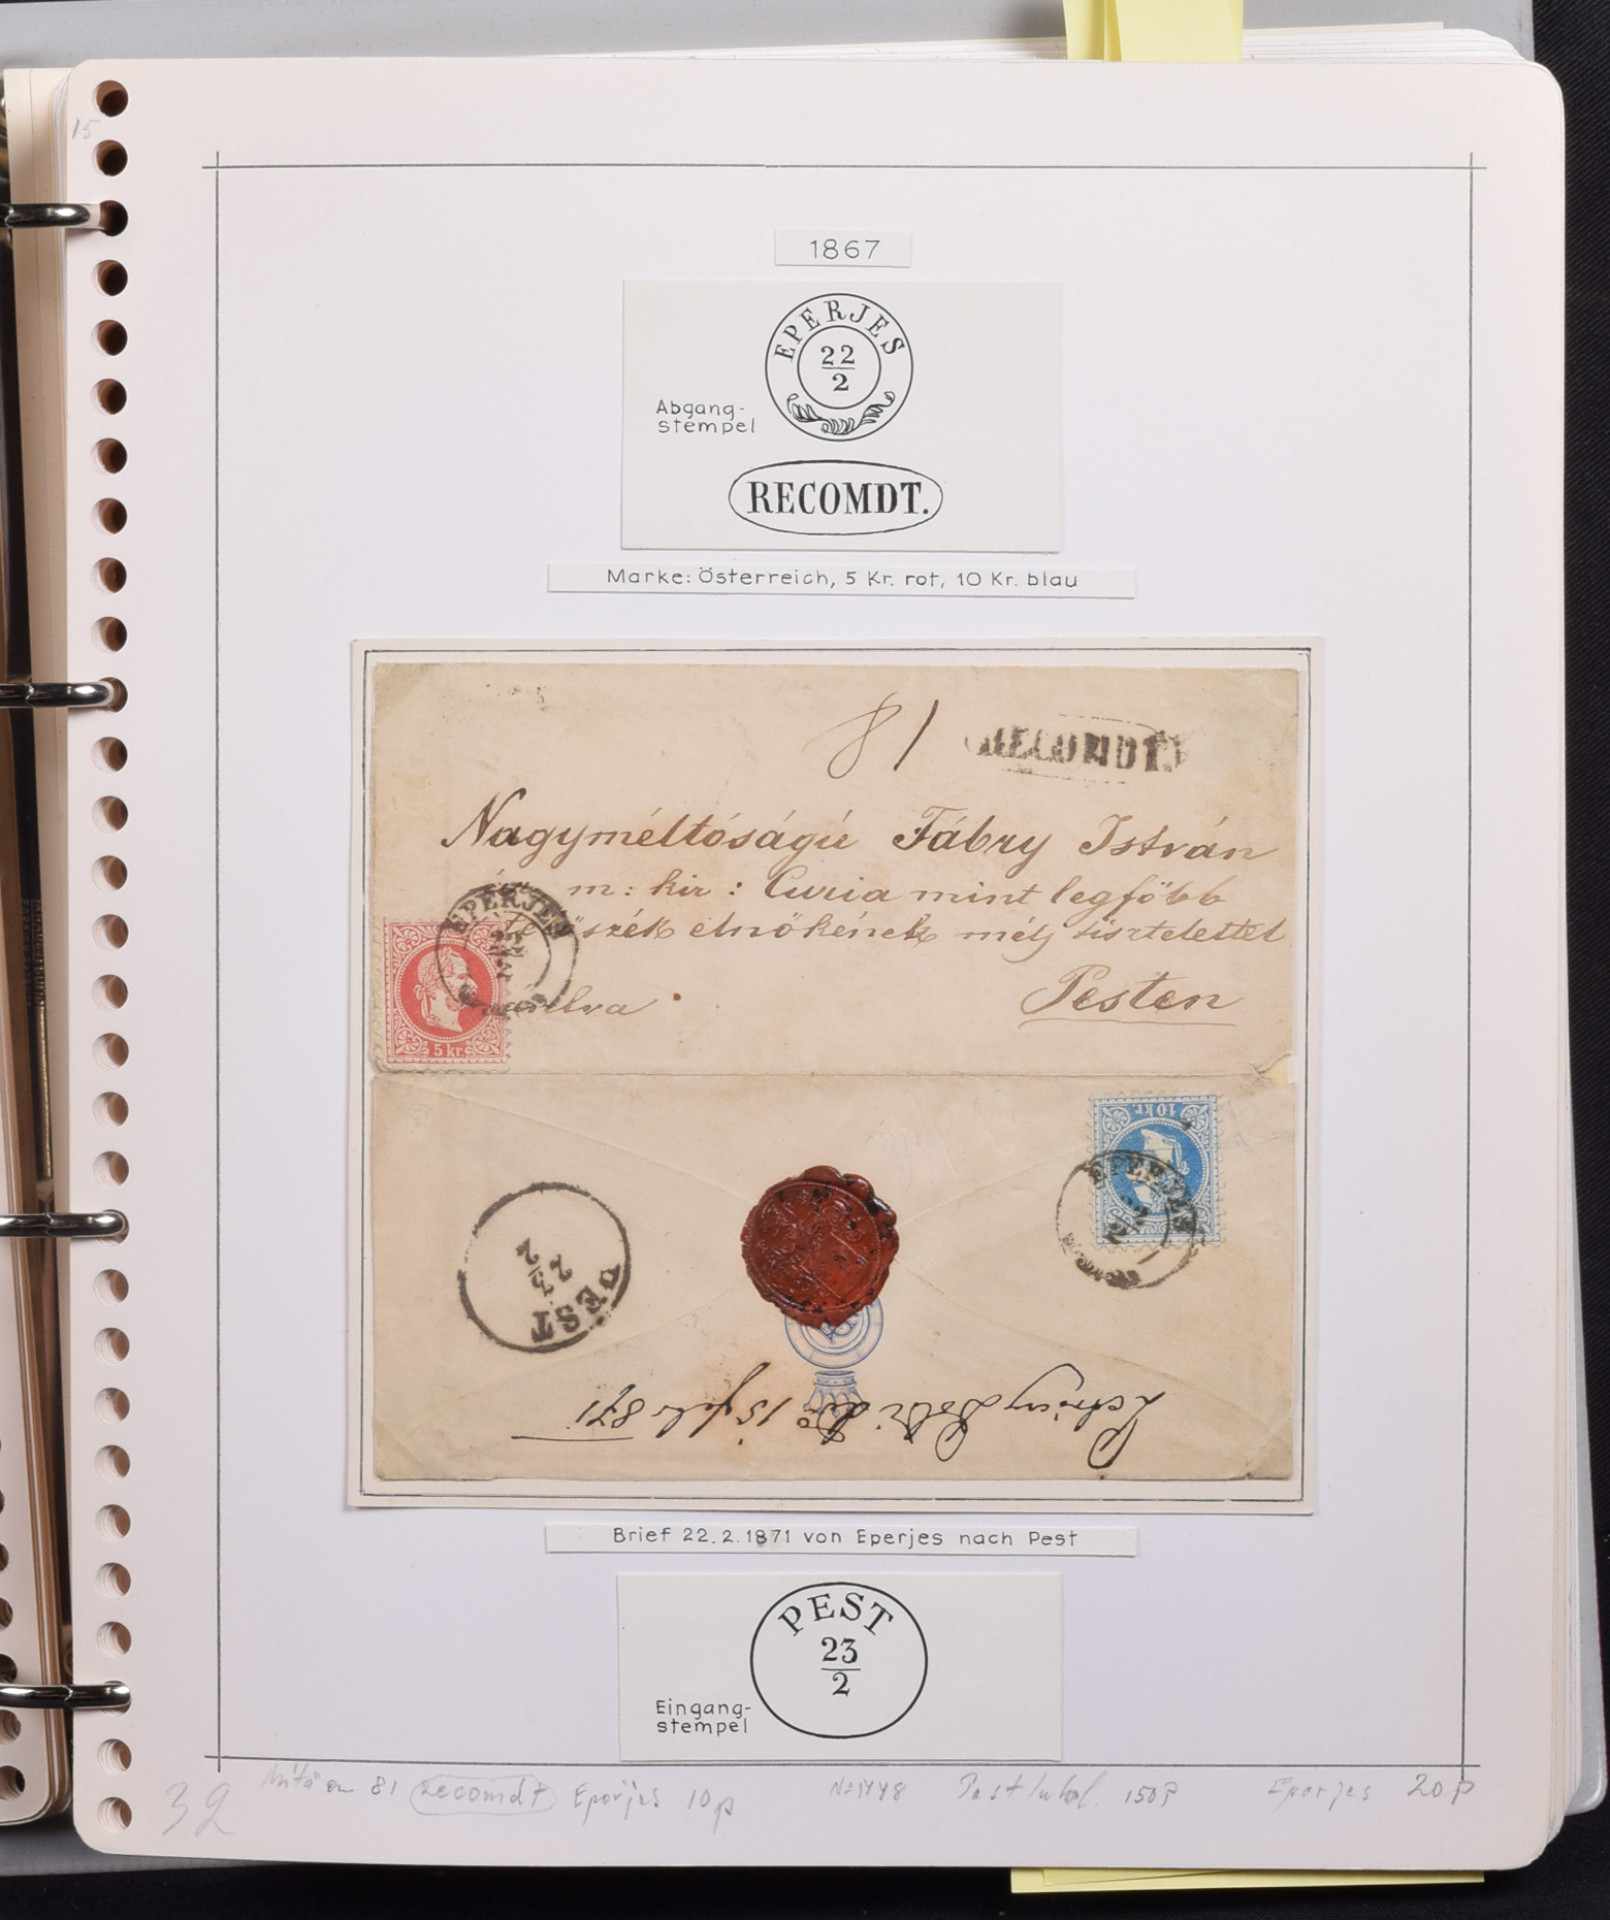 15
1867
EPERJES
22
2
Abgang-
stempel
RECOMDT.
Marke: Österreich, 5 Kr. rot, 10 Kr. blau
81 RECOMDT.
Nagyméltóságú Fábry István
m: kir: Curia mint legfőbb
elnökének mély tisztelettel
EPERJES
22
2
Pesten
5 kr.
10 kr.
EPERJES
22
2
PEST
23
2
15 feb 871
Brief 22.2.1871 von Eperjes nach Pest
PEST
23
2
Eingang-
stempel
81 recomdt Eperjes 10p 150P Eperjes 20p
32